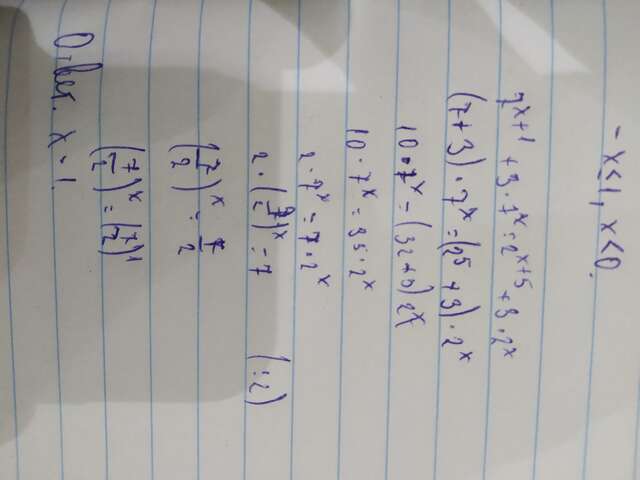 -x<1, x<0.
7^{x+1} + 3·7^x = 2^{x+5} + 3·2^x
(7+3)·7^x = (2^5+3)·2^x
10·7^x = (32+3)2^x
10·7^x = 35·2^x
2·7^x = 7·2^x
2·(7/2)^x = 7 (:2)
(7/2)^x = 7/2
(7/2)^x = (7/2)^1
Ответ. x = 1